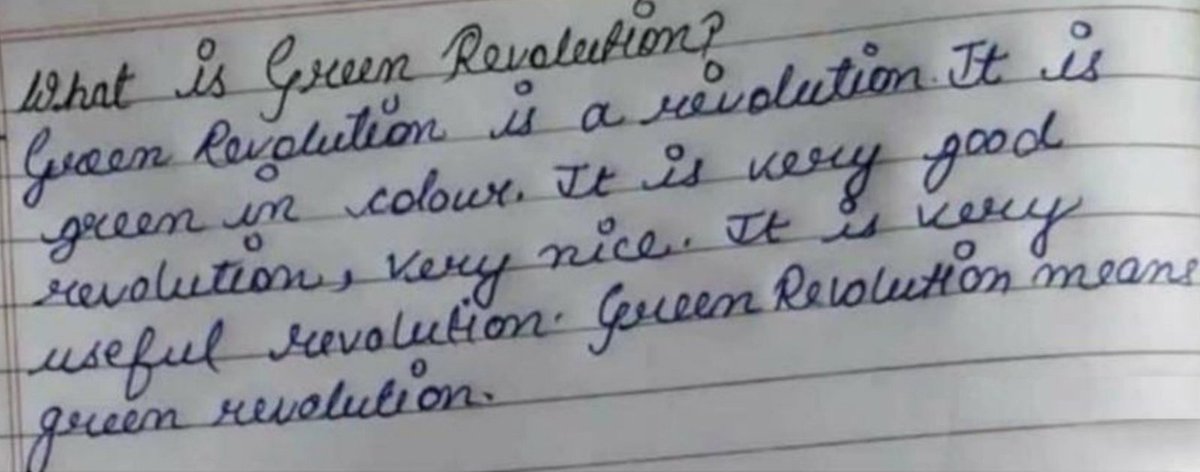 What is Green Revolution?
Green Revolution is a revolution. It is
green in colour. It is very good
revolution, very nice. It is very
useful revolution. Green Revolution means
green revolution.